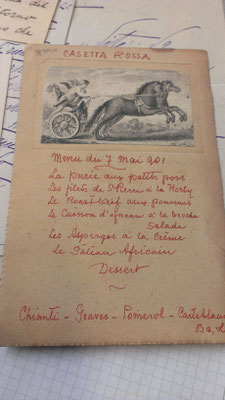 CASETTA ROSSA
Menu du 7 Mai 901
La purée aux petits pois
Les filets de St Pierre à la Horly
Le Roastbeef aux pommes
Le Cuisson d'agneau à la broche
Salade
Les Asperges à la Crème
Le Gâteau Africain
Dessert
Chianti - Graves - Pomerol -